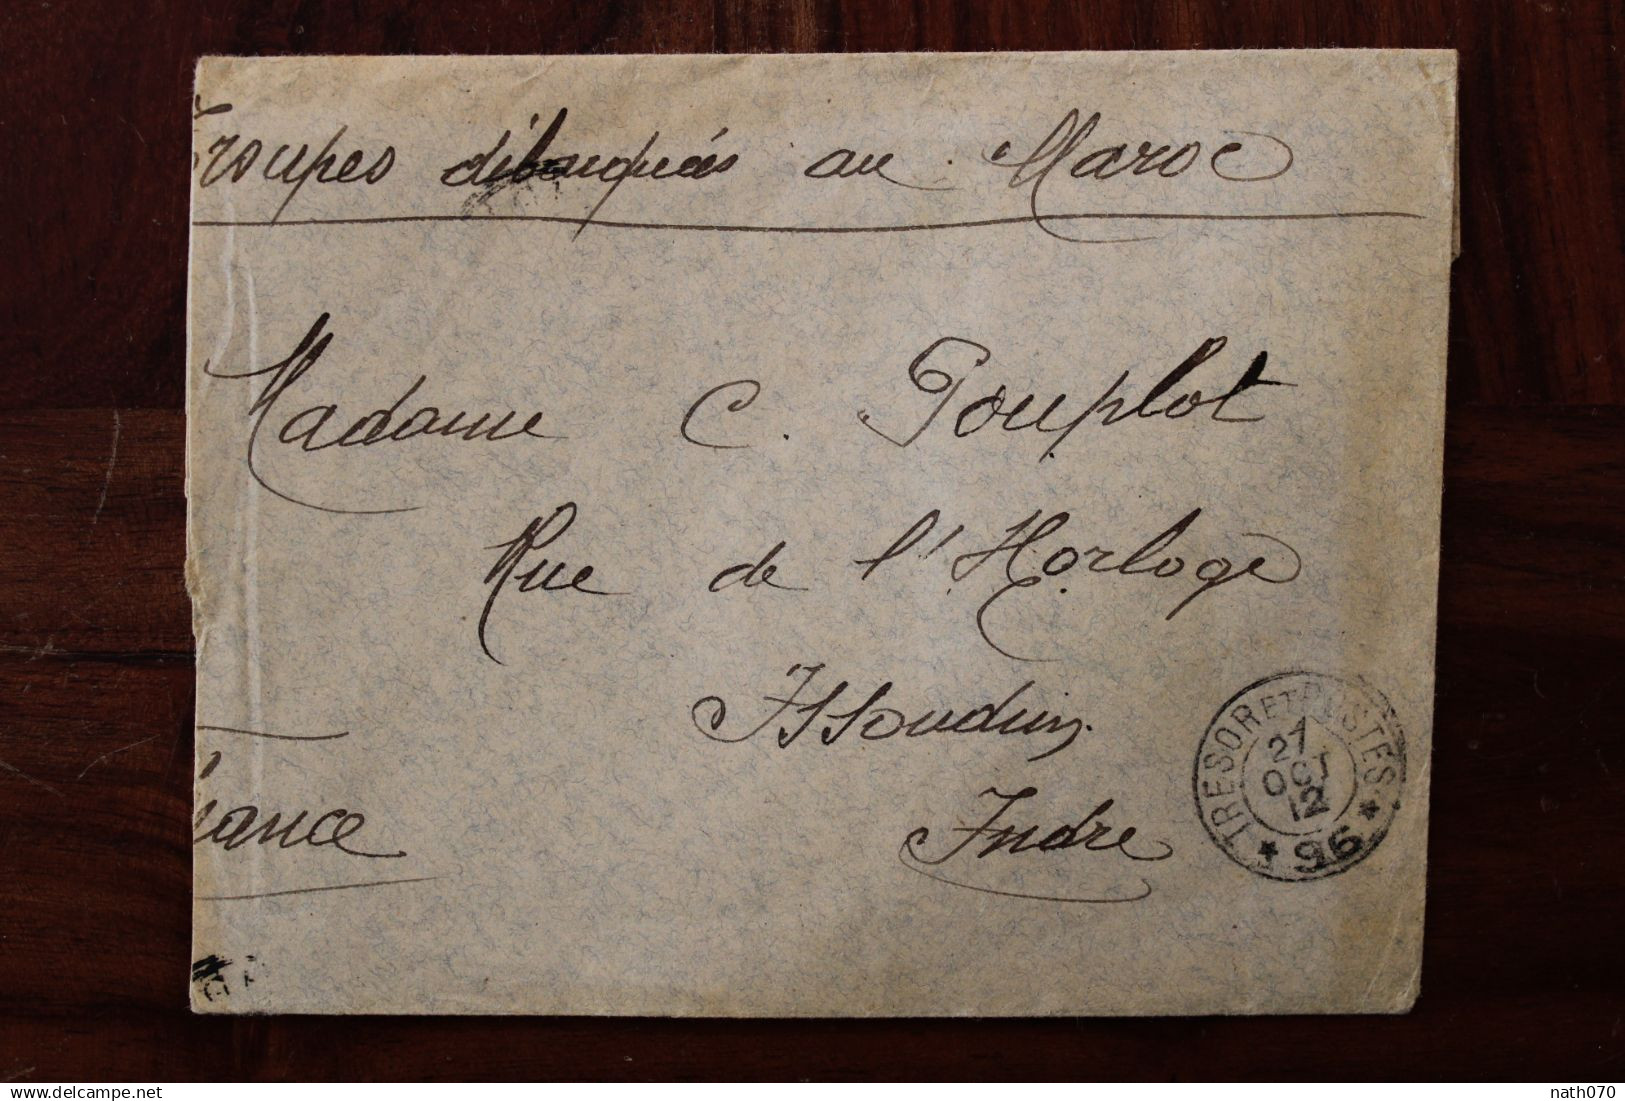 Troupes débarquées au Maroc
Madame C. Pouplot
Rue de l'Horloge
Issoudun
Indre
rance
TRESOR ET POSTES
21
OCT
12
* 96 *
nath070